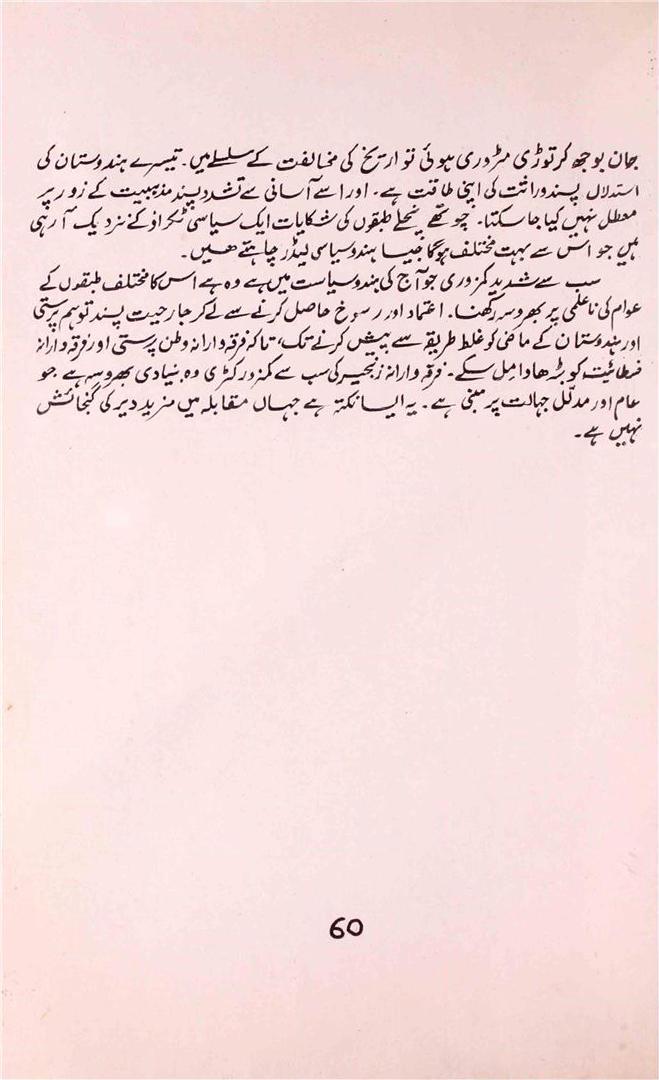 جان بوجھ کر توڑی مڑوری ہوئی تواریخ کی مخالفت کے سلسلے میں۔ تیسرے ہندوستان کی
استدلال پسند وراثت کی اپنی طاقت ہے۔ اور اسے آسانی سے تشدد پسند مذہبیت کے زور پر
معطل نہیں کیا جا سکتا۔ چوتھے نچلے طبقوں کی شکایات ایک سیاسی ٹکراؤ کے نزدیک آ رہی
ہیں جو اس سے بہت مختلف ہوگا جیسا ہندو سیاسی لیڈر چاہتے ھیں۔
سب سے شدید کمزوری جو آج کی ہندو سیاست میں ہے وہ ہے اس کا مختلف طبقوں کے
عوام کی ناعلمی پر بھروسہ رکھنا۔ اعتماد اور رسوخ حاصل کرنے سے لے کر جارحیت پسند توہم پرستی
اور ہندوستان کے ماضی کو غلط طریقے سے پیش کرنے تک، تاکہ فرقہ دارانہ وطن پرستی اور فرقہ دارانہ
فسطائیت کو بڑھاوا مل سکے۔ فرقہ وارانہ زنجیر کی سب سے کمزور کڑی وہ بنیادی بھروسہ ہے جو
عام اور مدلّل جہالت پر مبنی ہے۔ یہ ایسا نکتہ ہے جہاں مقابلہ میں مزید دیر کی گنجائش
نہیں ہے۔
60